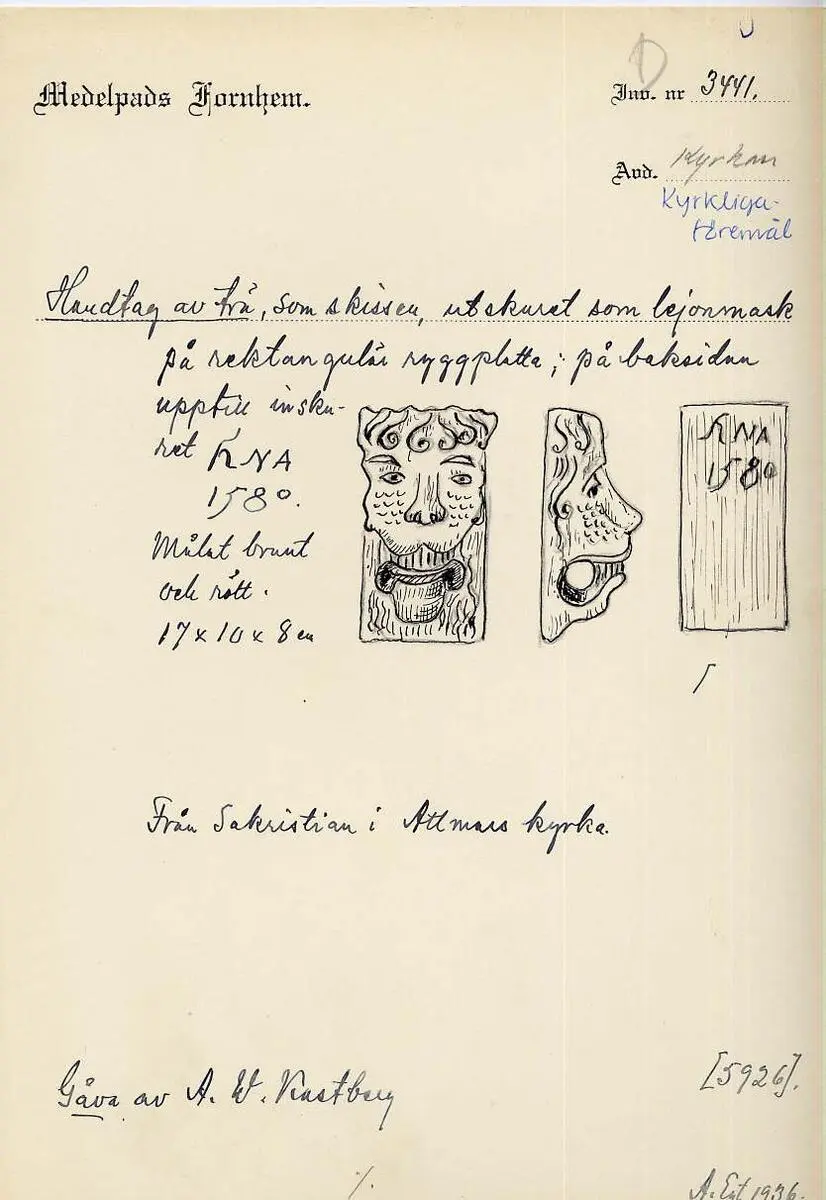 Medelpads Fornhem.
Inv. nr 3441.
Avd. Kyrkan
Kyrkliga-
föremål
Handtag av trä, som skissen, utskuret som lejonmask
på rektangulär ryggplatta; på baksidan
upptill insku-
ret KNA
1580.
Målat brunt
och rött.
17 x 10 x 8 cm
KNA
1580
Från Sakristian i Attmars kyrka.
Gåva av A. W. Kastberg
[5926].
A. Ext 1936.